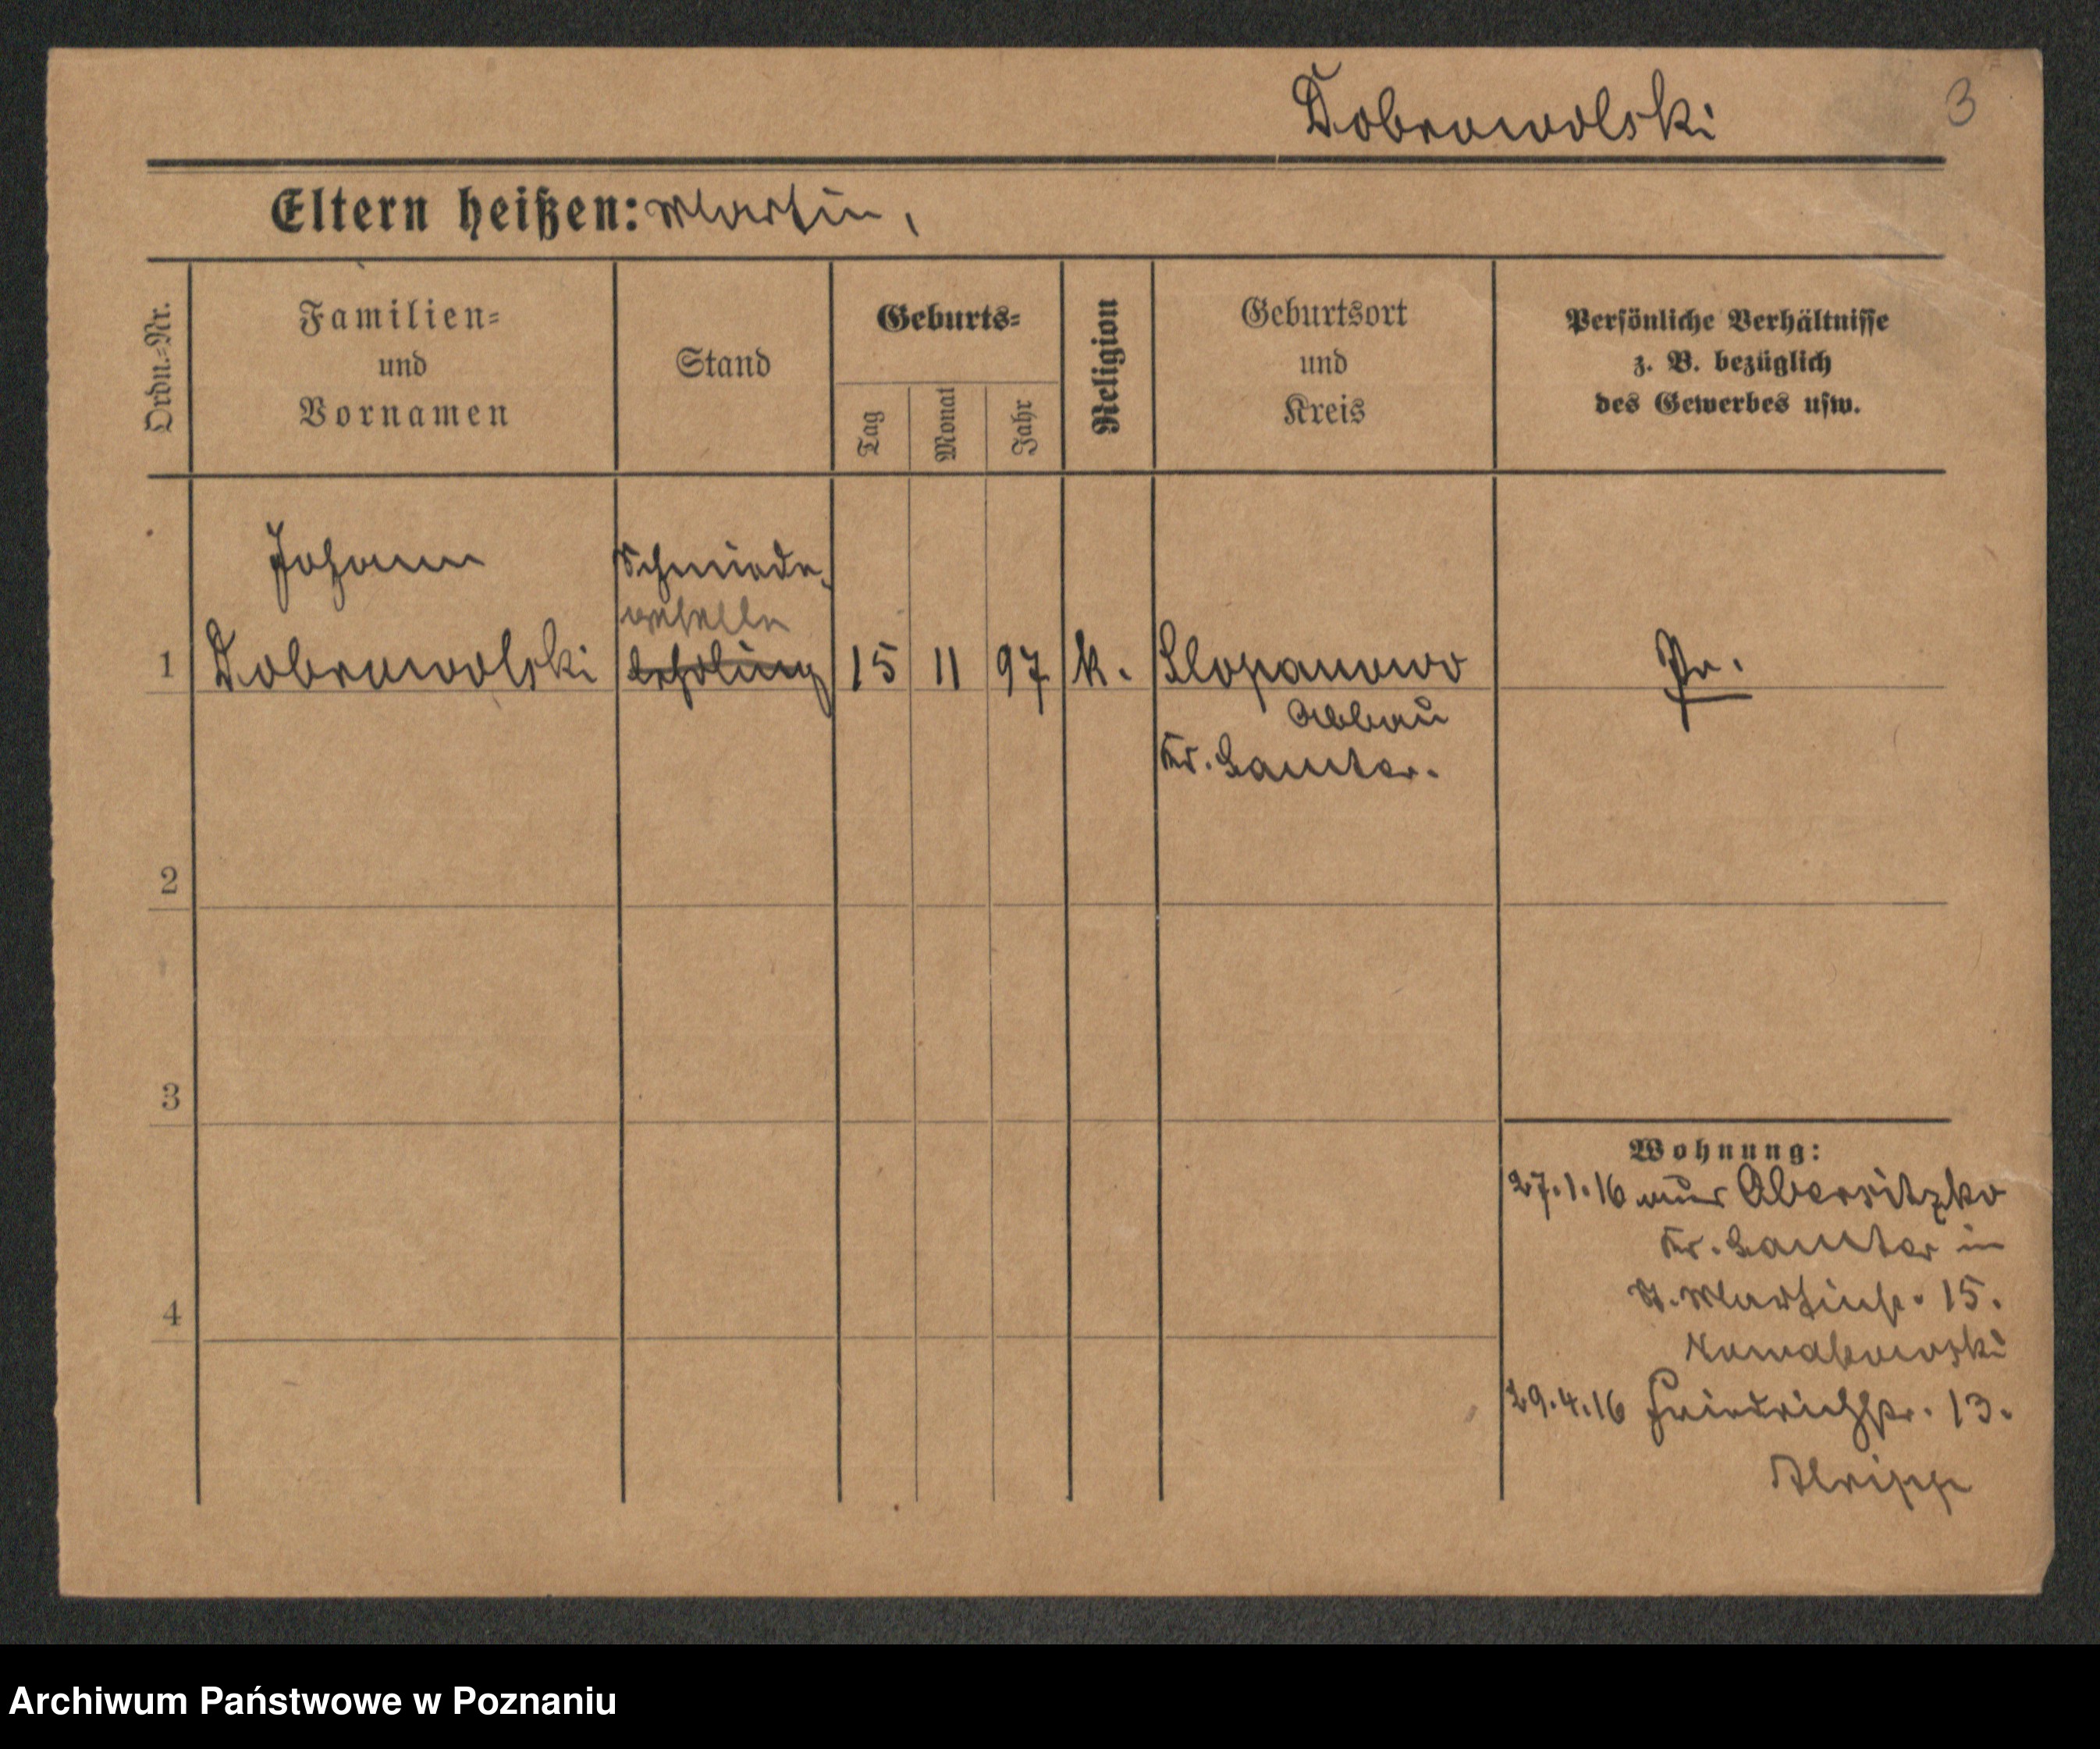 Dobrowolski
3
Eltern heißen: Martin,
Ordn.-Nr.
Familien-
und
Vornamen
Stand
Geburts-
Tag
Monat
Jahr
Religion
Geburtsort
und
Kreis
Persönliche Verhältnisse
z. B. bezüglich
des Gewerbes usw.
Johann
Schmiede-
geselle
1 Dobrowolski Lehrling 15 11 97 k. Slopanowo Pr.
Abbau
Kr. Samter.
2
3
4
Wohnung:
27.1.16 aus Obersitzko
Kr. Samter in
St. Martinstr. 15.
29.4.16 Friedrichstr. 13.
Archiwum Państwowe w Poznaniu